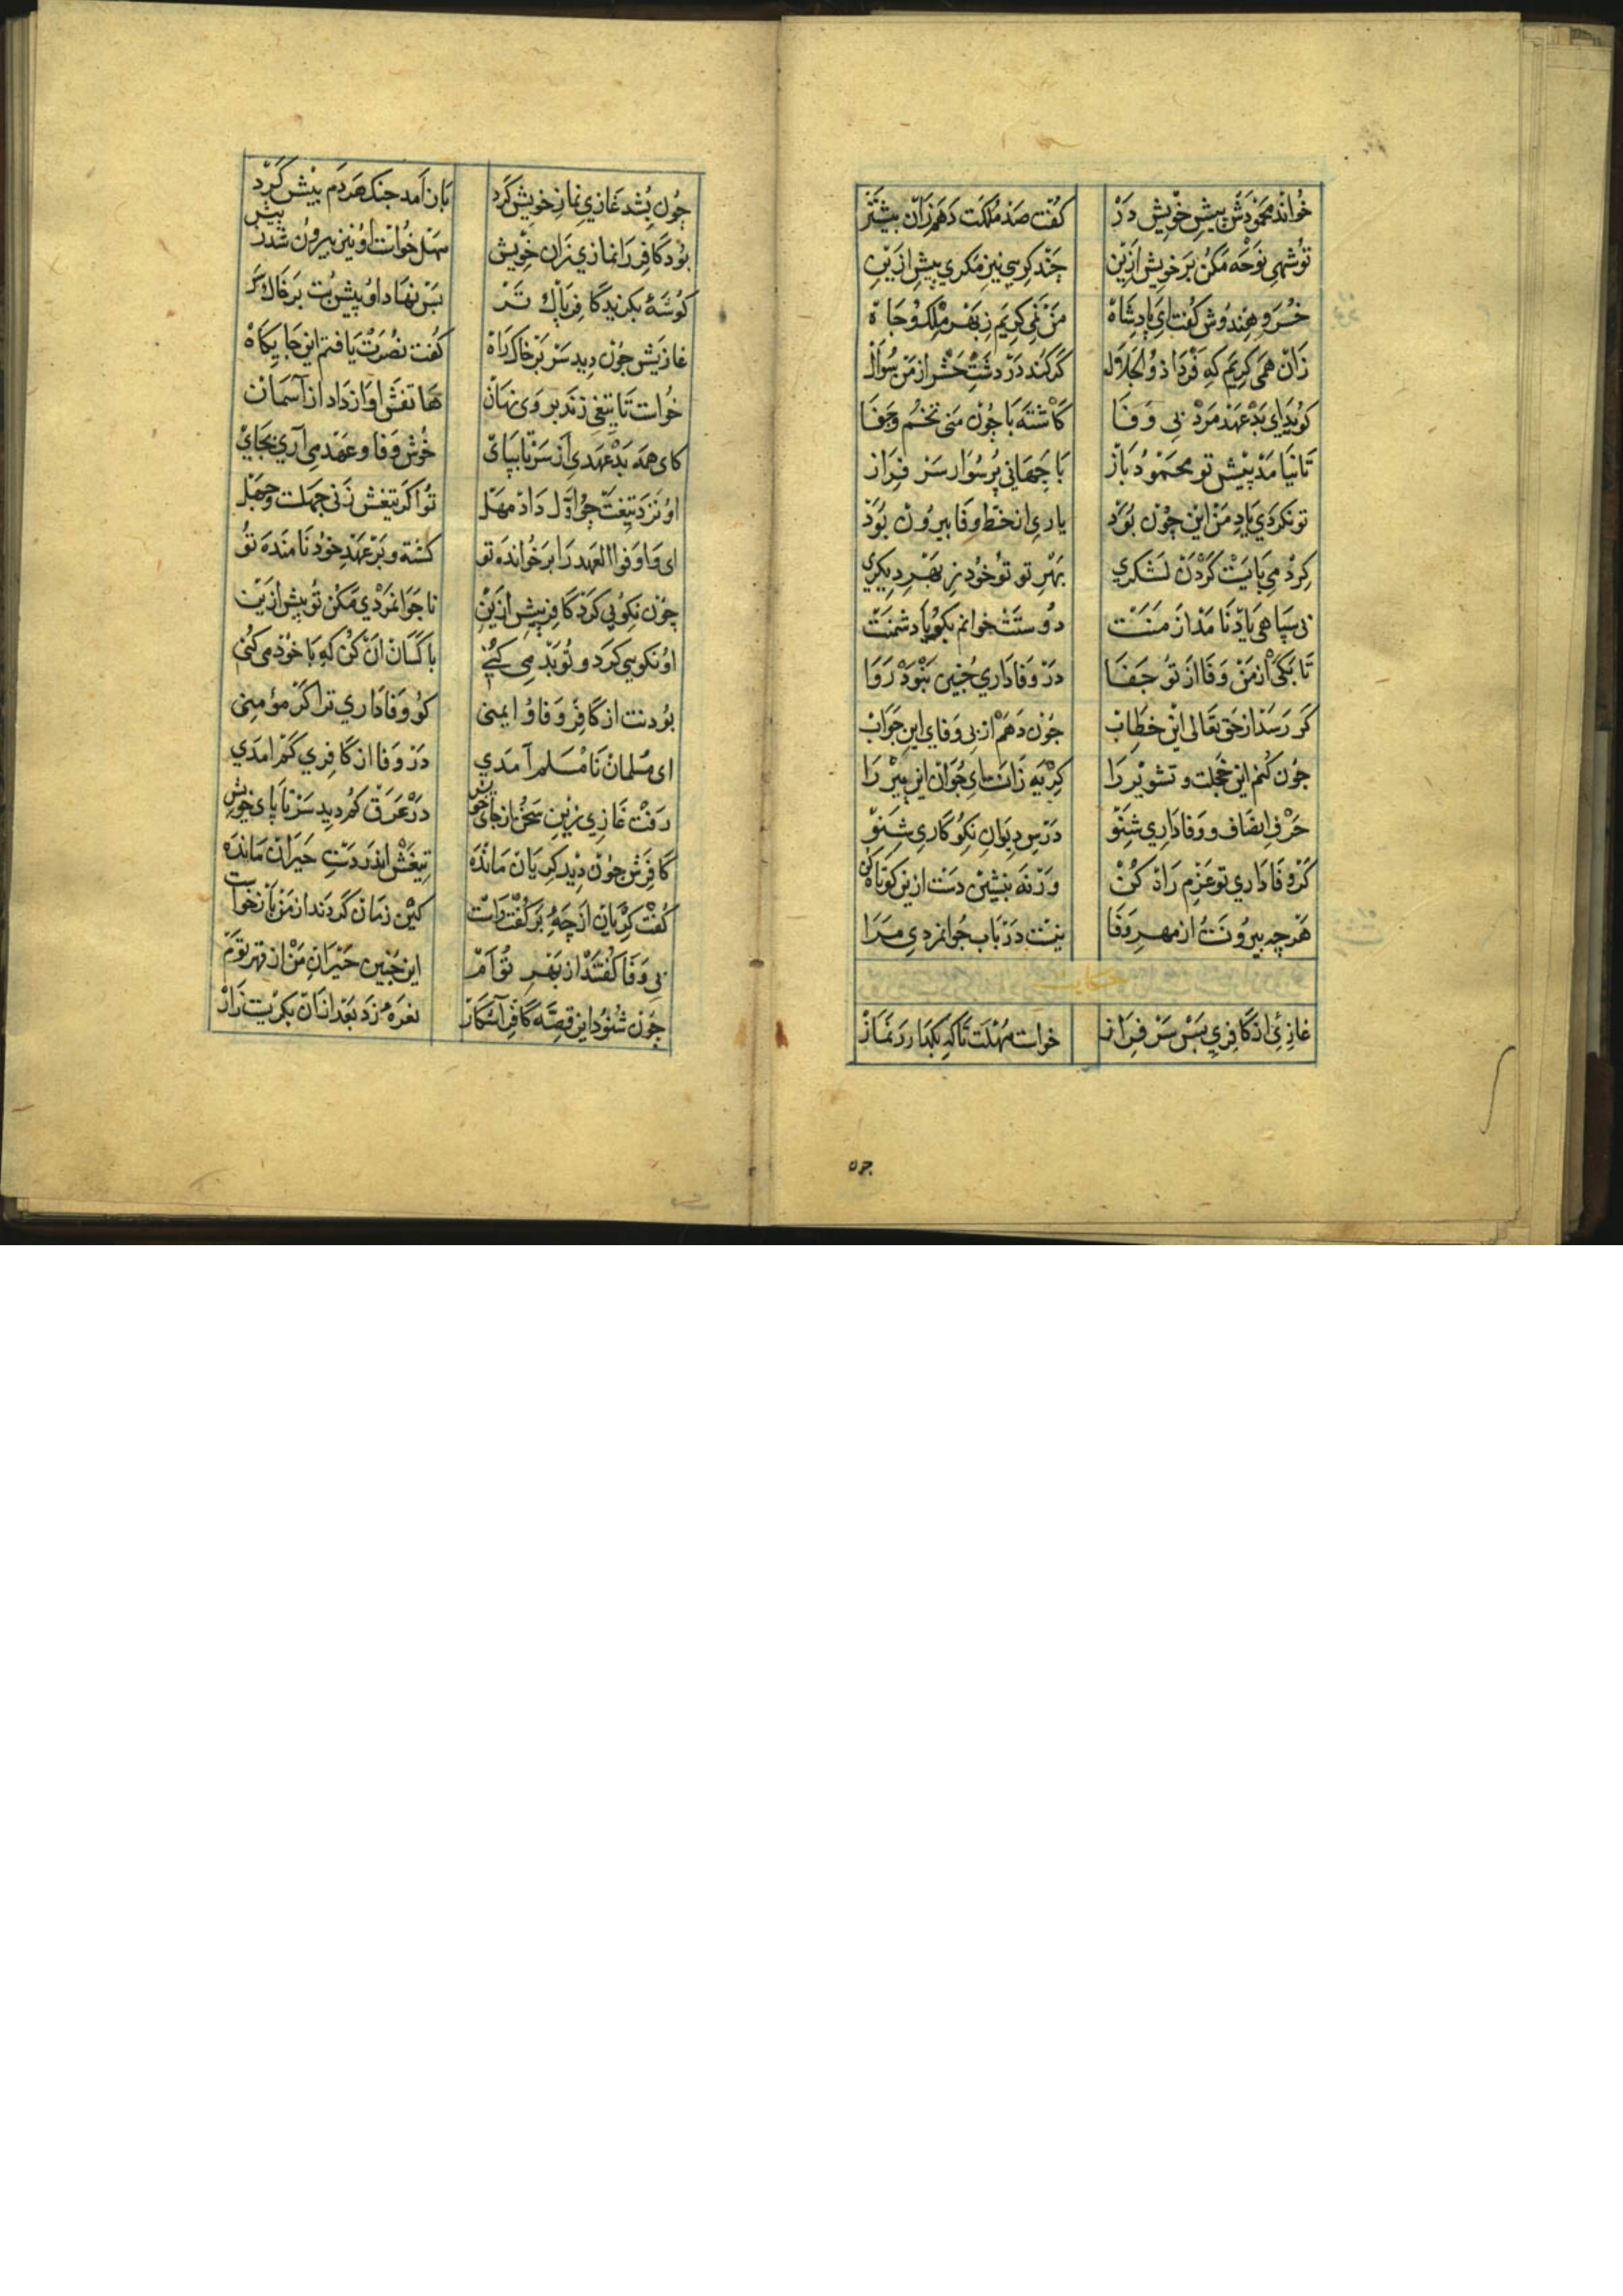 خواند محمودش بپیش خویش در	کفت صد ملکت دهم زان بیشتر
تو شهی نوحه مکن بر خویش ازین	چند کریی نیز مکری بیش ازین
خسرو هندوش کفت ای پادشاه	من نمی کریم ز بهر ملک و جاه
زان همی کریم که فردا ذو الجلال	کر کند در دشت حشر از من سوال
کوید ای بد عهد مرد بی وفا	کاشته با چون منی تخم و جفا
تا نیامد پیش تو محمود باز	با جهانی پر سوار سر فراز
تو نکردی یاد من این چون بود	یاری از خط وفا بیرون بود
کرد می بایست کردن لشکری	بهر تو تو خود ز بهر دیکری
بی سپاهی یاد نامد از منت	دوستت خوانم بکو یا دشمنت
تا بکی از من وفا از تو جفا	در وفاداری چنین نبود روا
کر رسد از حق تعالی این خطاب	چون دهم از بی وفای این جواب
چون کنم این خجلت و تشویر را	کریه زانست ای جوان این پیر را
حرف انصاف و وفاداری شنو	درس دیوان نکو کاری شنو
کر وفاداری تو عزم راه کن	ورنه بنشین دست ازین کوتاه کن
هر چه بیرونت از مهر وفا	نیست در باب جوانمردی مرا
حکایت
غازیی از کافری بس سر فراز	خواست مهلت تا که بکذارد نماز
چون
چون بشد غازی نماز خویش کرد	باز آمد جنک هر دم بیش کرد
بود کافر را نمازی زان خویش	مهل خواست او نیز بیرون شد ز پیش
کوشهٔ بکزید کافر پاک تر	پس نهاد او پیش بت بر خاک سر
غازیش چون دید سر بر خاک راه	کفت نصرت یافتم این جایکاه
خواست تا تیغی زند بر وی نهان	هاتفش اواز داد از آسمان
کای همه بد عهدی از سر تا بپای	خوش وفا و عهد می آری بجای
او نزد تیغت چو اول داد مهل	تو اکر تیغش زنی جهلست و جهل
ای و اوفوا العهد را بر خوانده تو	کشته و بر عهد خود نا منده تو
چون نکویی کرد کافر پیش ازین	ناجوانمردی مکن تو بیش ازین
او نکویی کرد و تو بد می کنی	با کسان آن کن که با خود می کنی
بودنت از کافر وفا و ایمنی	کو وفاداری ترا کر مؤمنی
ای مسلمان نا مسلم آمدی	در وفا از کافری کم امدی
رفت غازی زین سخن از جای خویش	در عرق کم دید سر تا پای خویش
کافرش چون دید کریان مانده	تیغش اندر دست حیران مانده
کفت کریان از چهٔ بر کفت راست	کین زمان کردند از من بازخواست
بی وفا کفتند از بهر تو ام	این چنین حیران من از قهر توم
چون شنود این قصه کافر آشکار	نعره زد بعد از آن بکریست زار